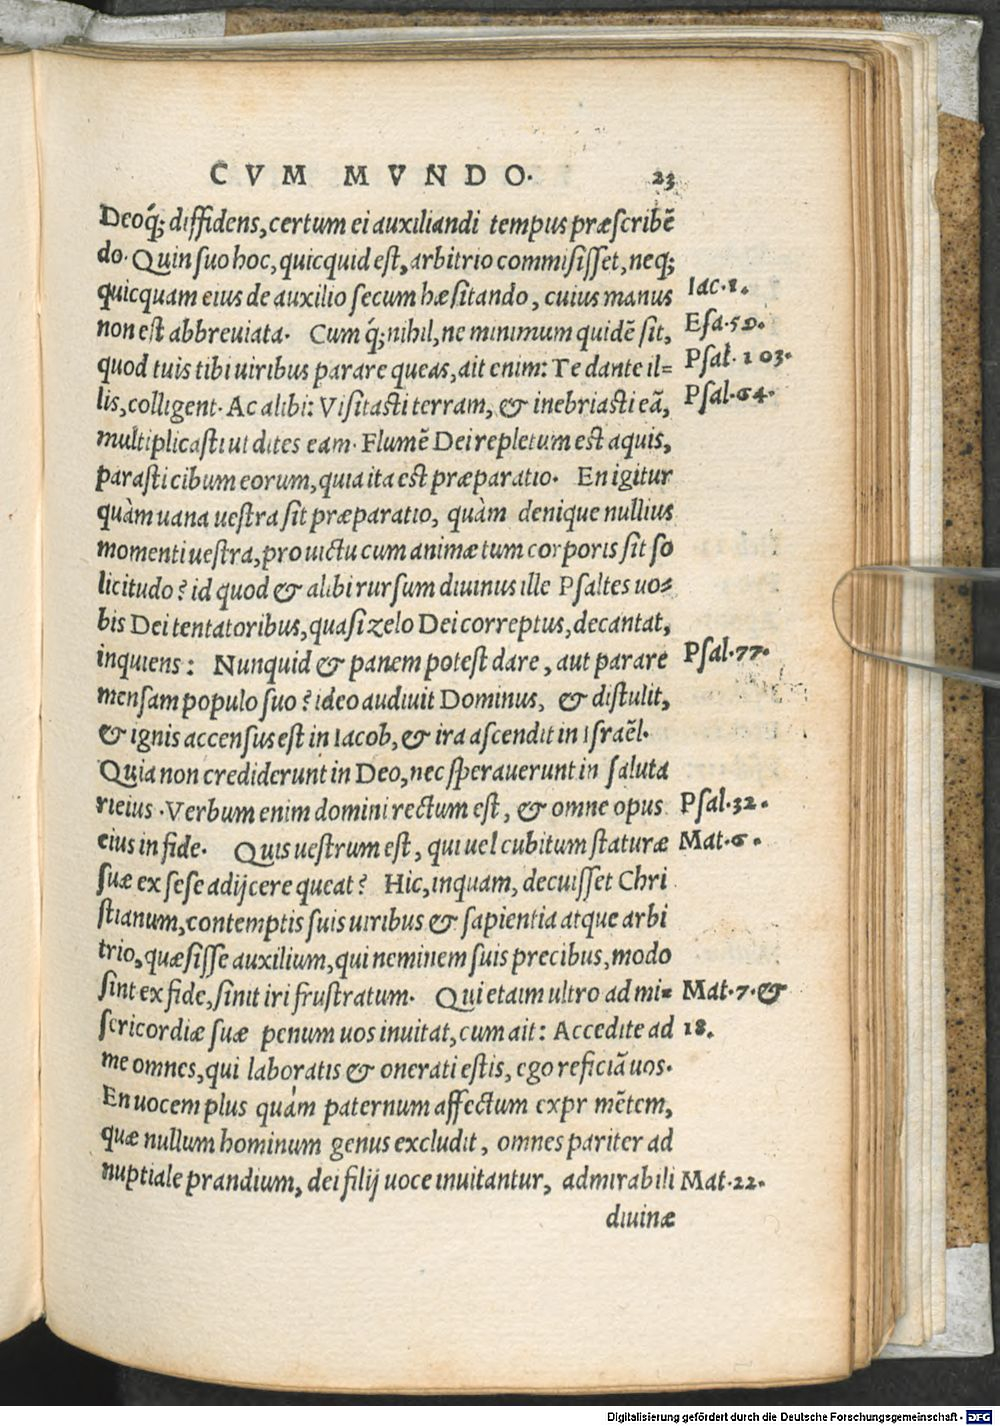 CVM MVNDO. 23
Deoq́; diffidens, certum ei auxiliandi tempus præscribẽ
do. Quin suo hoc, quicquid est, arbitrio commisisset, neq;
quicquam eius de auxilio secum hæsitando, cuius manus Iac.1.
non est abbreuiata. Cum q́; nihil, ne minimum quidẽ sit, Esa.50.
quod tuis tibi uiribus parare queas, ait enim: Te dante il= Psal.103.
lis, colligent. Ac alibi: Visitasti terram, & inebriasti eã, Psal.64.
multiplicasti ut dites eam. Flumẽ Dei repletum est aquis,
parasti cibum eorum, quia ita est præparatio. En igitur
quàm uana uestra sit præparatio, quàm denique nullius
momenti uestra, pro uictu cum animæ tum corporis sit so
licitudo? id quod & alibi rursum diuinus ille Psaltes uo=
bis Dei tentatoribus, quasi zelo Dei correptus, decantat,
inquiens: Nunquid & panem potest dare, aut parare Psal.77.
mensam populo suo? ideo audiuit Dominus, & distulit,
& ignis accensus est in Iacob, & ira ascendit in Israẽl.
Quia non crediderunt in Deo, nec sperauerunt in saluta
ri eius. Verbum enim domini rectum est, & omne opus Psal.32.
eius in fide. Quis uestrum est, qui uel cubitum staturæ Mat.6.
suæ ex sese adijcere queat? Hic, inquam, decuisset Chri
stianum, contemptis suis uiribus & sapientia atque arbi
trio, quæsisse auxilium, qui neminem suis precibus, modo
sint ex fide, sinit iri frustratum. Qui etaim ultro ad mi= Mat.7.&
sericordiæ suæ penum uos inuitat, cum ait: Accedite ad 18.
me omnes, qui laboratis & onerati estis, ego reficiã uos.
En uocem plus quám paternum affectum expr mẽtem,
quæ nullum hominum genus excludit, omnes pariter ad
nuptiale prandium, dei filij uoce inuitantur, admirabili Mat.22.
diuinæ
Digitalisierung gefördert durch die Deutsche Forschungsgemeinschaft - DFG